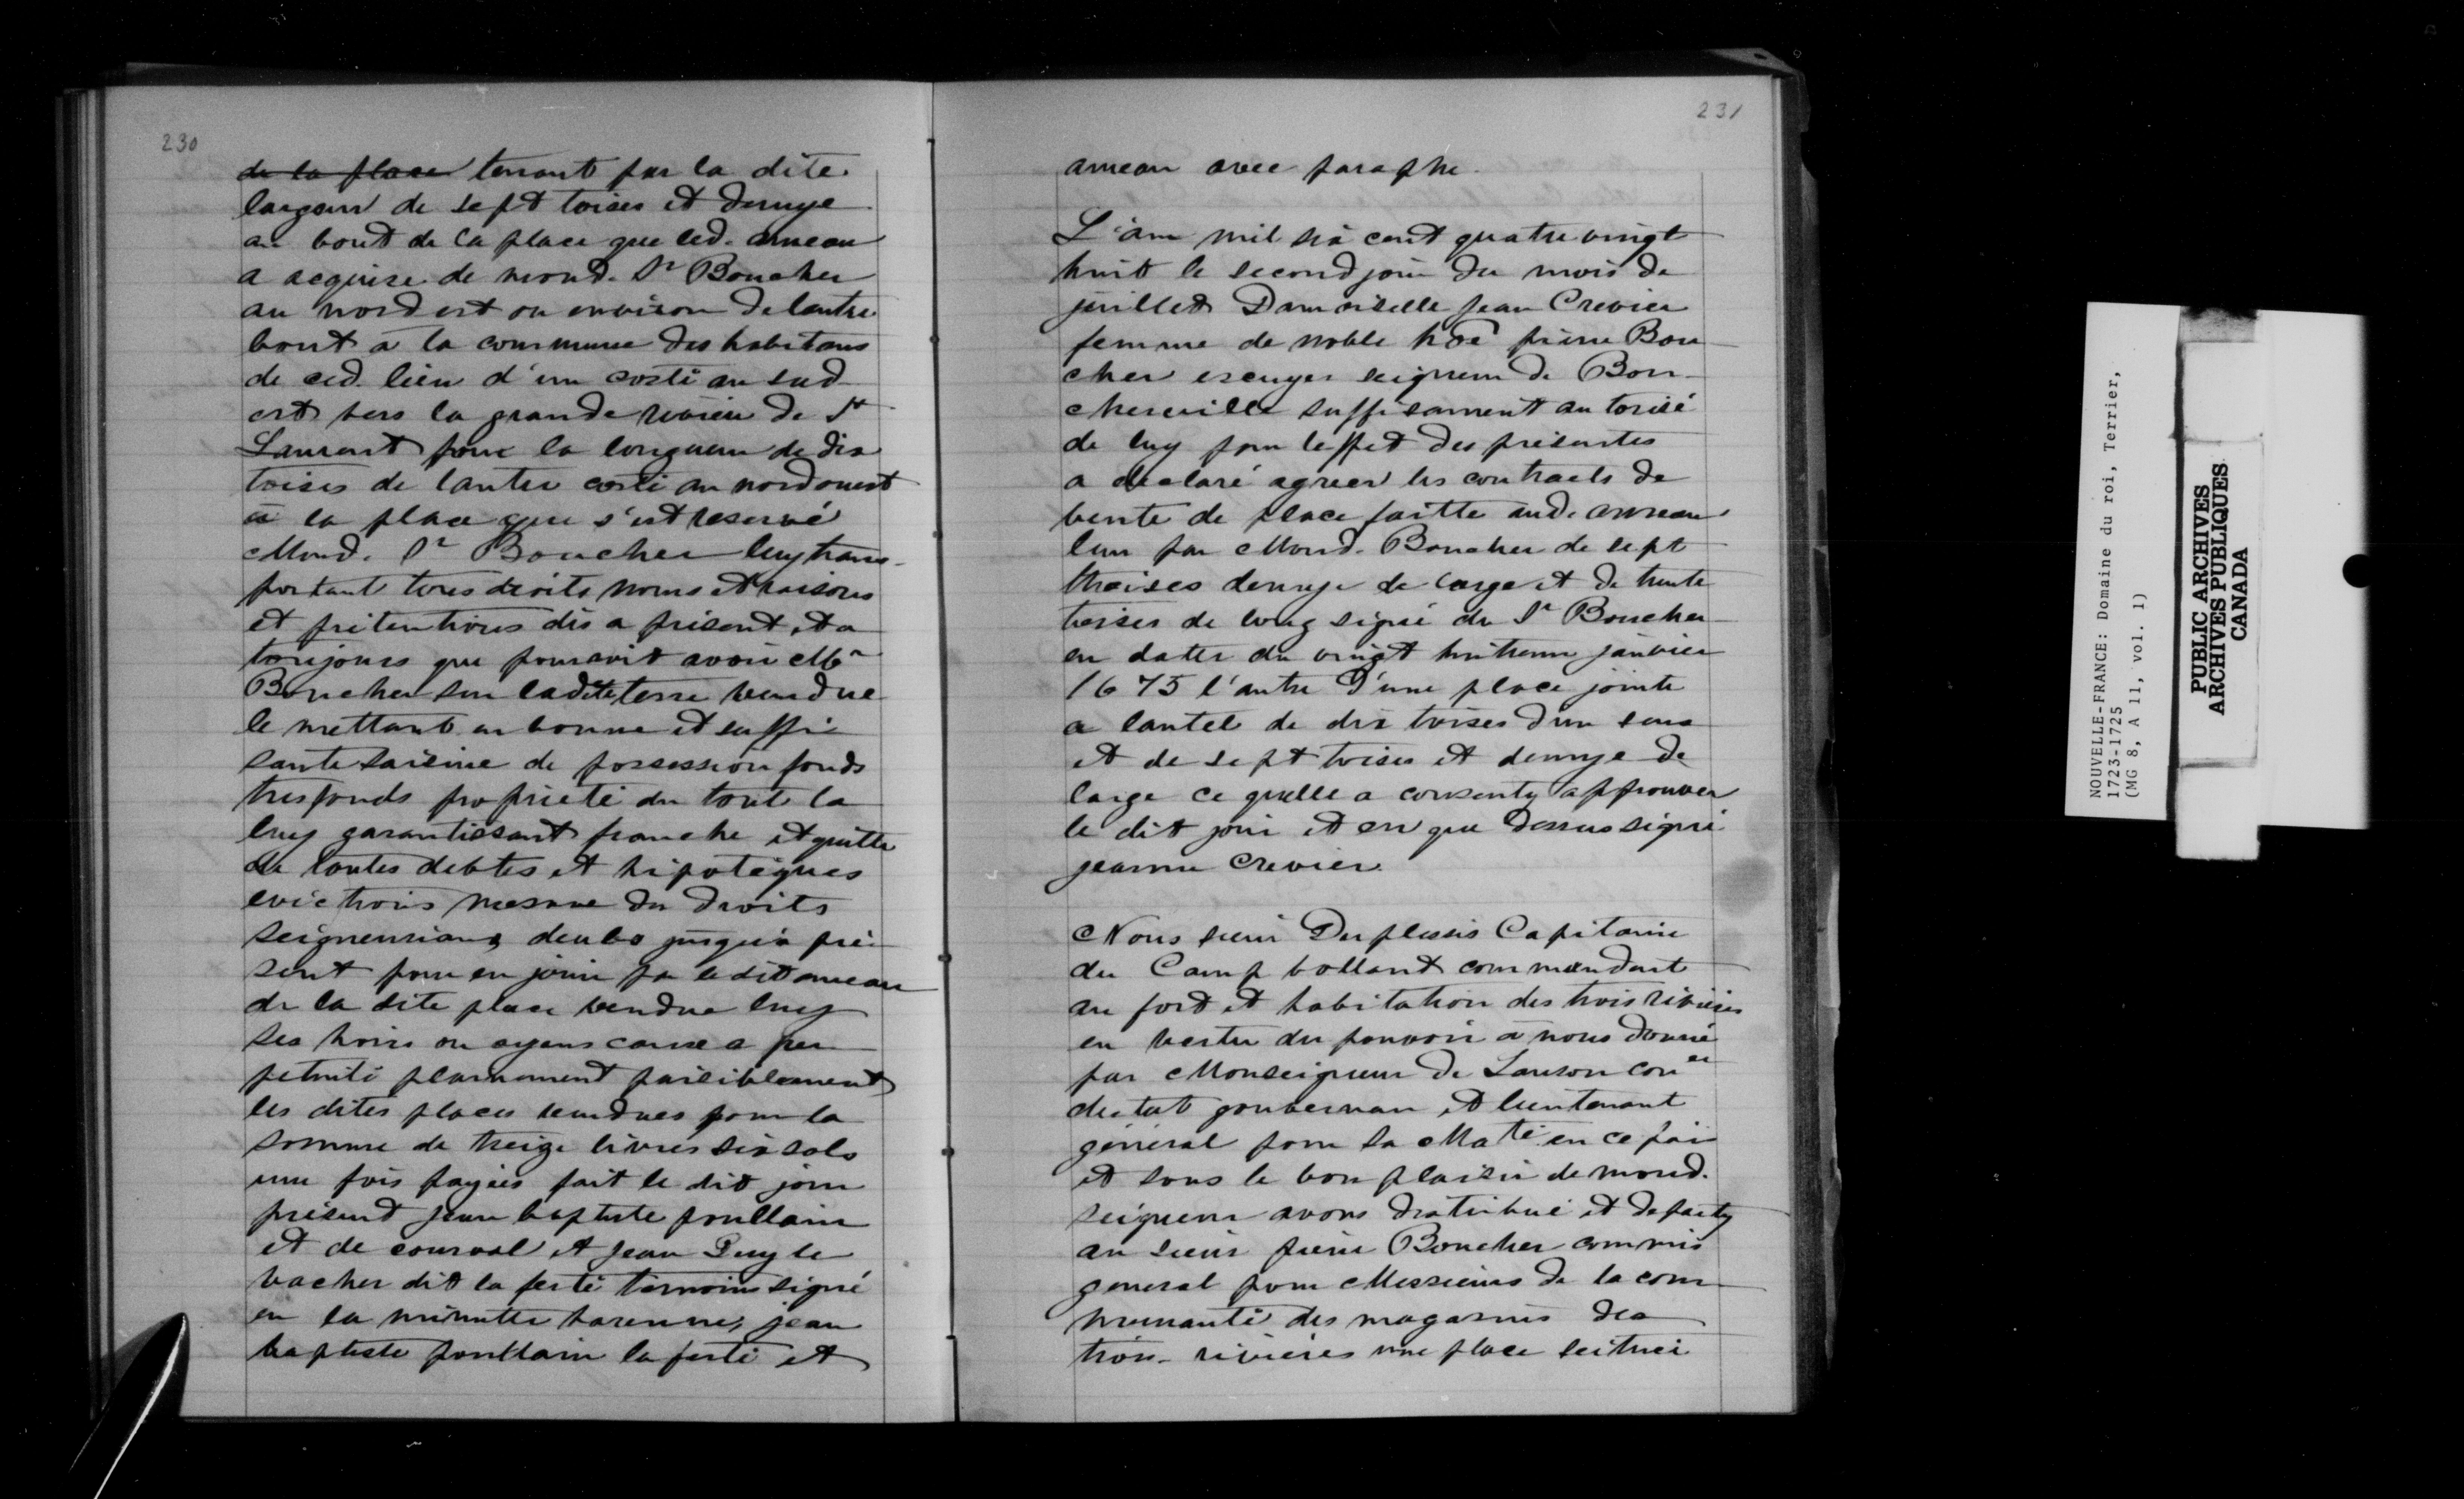 230
de la place tenant par la dite
largeur de sept toises et demye
au bout de la place que led. ameau
a acquise de mond. Sr Boucher
au nord est ou environ de lautre
bout a la commune des habitans
de ced. lieu d'un costé au sud
est vers la grande riviere de St
Laurent pour la longueur de dix
toises de lautre costé au nord ouest
a la place que s'est reservé
Mond. Sr Boucher luy trans-
portant tous droits noms et raisons
et pretentions dès a present et a
toujours que pouroit avoir Mr
Boucher sur ladite terre vendue
le mettant en bonne et suffi-
sante saisine de possession fonds
tresfonds proprieté du tout la
luy garantissant franche et quitte
de toutes debtes et hipoteques
evictions mesme du droits
seigneuriaux deubs jusqu'à pré-
sent pour en jouir par ledit ameau
de la dite place vendue luy
ses hoirs ou ayans cause a per-
petuité plainement paisiblement
les dites places vendues pour la
somme de treize livres six sols
une fois payées fait le dit jour
présent jean baptiste poullain
et de courval et jean Puyle
vacher dit la ferté témoins signé
en la minutte Larenne, jean
baptiste poullain la ferté et
231
ameau avec paraphe.
L'an mil six cent quatre vingt
huit le second jour du mois de
juillet Damoiselle jean Crevier
femme de noble hoe pierre Bou-
cher escuyer seigneur de Bou-
cherville suffisament autorisé
de luy pour leffet des présentes
a déclaré agreer les contracts de
vente de place faitte aud. ameau
lun par Mond. Boucher de sept
thoises demye de large et de trente
toises de long signé du Sr Boucher
en datte du vingt huitieme janvier
1675 l'autre d'une place jointe
a lautel de dix toises dun sens
et de sept toises et demye de
large ce quelle a consenty approuver
le dit jour et en que dessus signé
jeanne Crevier.
Nous sieur Duplessis Capitaine
du Camp vollant commandant
au fort et habitation des trois rivières
en vertu du pouvoir à nous donné
par Monseigneur de Lauson coner
destat gouverneur et lieutenant
général pour sa Maté en ce païs
et sous le bon plaisir de mond.
seigneur avons distribué et departy
au sieur pierre Boucher commis
general pour Messieurs de la com-
munauté des magasins des
trois-rivières une place scituée
NOUVELLE-FRANCE: Domaine du roi, Terrier,
1723-1725
(MG 8, A 11, vol. 1)
PUBLIC ARCHIVES
ARCHIVES PUBLIQUES
CANADA